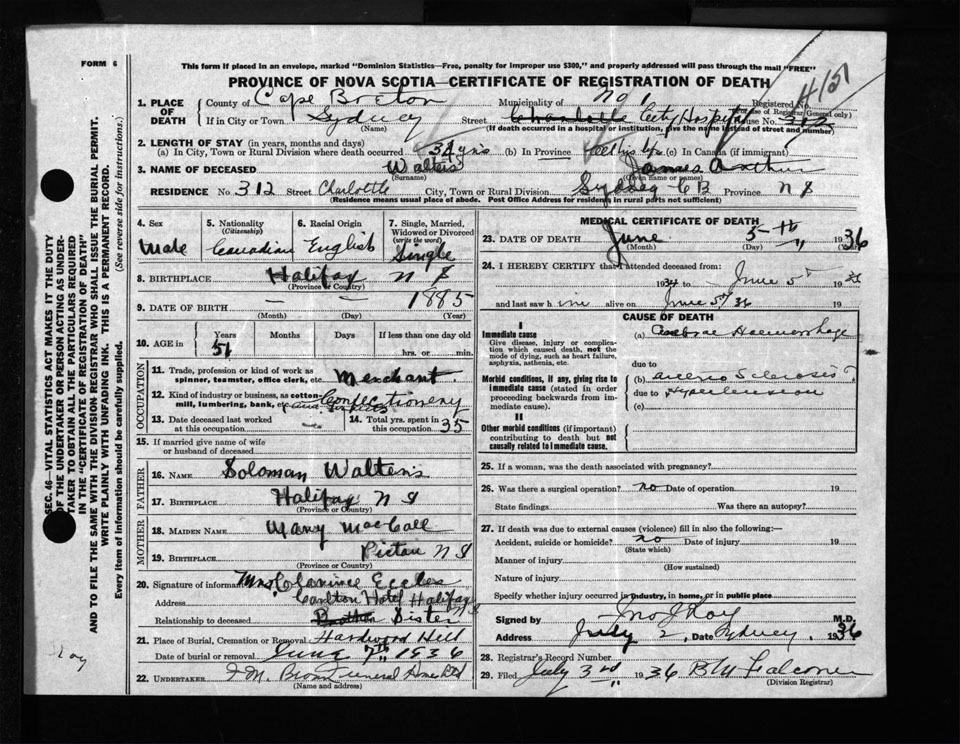 FORM 6
This form if placed in an envelope, marked "Dominion Statistics—Free, penalty for improper use $300," and properly addressed will pass through the mail "FREE"
PROVINCE OF NOVA SCOTIA—CERTIFICATE OF REGISTRATION OF DEATH
1. PLACE OF DEATH
County of Cape Breton Municipality of No 1 Registered No.
(For use of Registrar General only)
If in City or Town Sydney Street Charlotte City Hospital House No. 312
(Name) (If death occurred in a hospital or institution, give the name instead of street and number)
2. LENGTH OF STAY (in years, months and days)
(a) In City, Town or Rural Division where death occurred 34 yrs (b) In Province all his life (c) In Canada (if immigrant)
3. NAME OF DECEASED Walters James Arthur
(Surname) (Given name or names)
RESIDENCE No 312 Street Charlotte City, Town or Rural Division Sydney CB Province N S
(Residence means usual place of abode. Post Office Address for residents in rural parts not sufficient)
4. Sex
Male
5. Nationality
(Citizenship)
Canadian
6. Racial Origin
English
7. Single, Married, Widowed or Divorced
(write the word)
Single
8. BIRTHPLACE Halifax N S
(Province or Country)
9. DATE OF BIRTH — — 1885
(Month) (Day) (Year)
10. AGE in
Years Months Days If less than one day old
51 hrs. or min.
OCCUPATION
11. Trade, profession or kind of work as spinner, teamster, office clerk, etc. Merchant
12. Kind of industry or business, as cotton-mill, lumbering, bank, etc. Confectionery
13. Date deceased last worked at this occupation
14. Total yrs. spent in this occupation 35
15. If married give name of wife or husband of deceased
FATHER
16. NAME Soloman Walters
17. BIRTHPLACE Halifax N S
(Province or Country)
MOTHER
18. MAIDEN NAME Mary MacCall
19. BIRTHPLACE Pictou N S
(Province or Country)
20. Signature of informant Mrs. Clarence
Address Carlton Hotel Halifax N S
Relationship to deceased Brother Sister
21. Place of Burial, Cremation or Removal Hardwood Hill
Date of burial or removal June 7th 1936
22. UNDERTAKER Funeral Home Ltd
(Name and address)
MEDICAL CERTIFICATE OF DEATH
23. DATE OF DEATH June 5th 1936
(Month) (Day)
24. I HEREBY CERTIFY that I attended deceased from:
1934 to June 5th 1936
and last saw him alive on June 5th/36
CAUSE OF DEATH
I
Immediate cause
Give disease, injury or complication which caused death, not the mode of dying, such as heart failure, asphyxia, asthenia, etc.
(a) Cerebral Haemorrhage
due to
Morbid conditions, if any, giving rise to immediate cause (stated in order proceeding backwards from immediate cause).
(b) Arterio Sclerosis
due to Hypertension
(c)
II
Other morbid conditions (if important) contributing to death but not causally related to immediate cause.
25. If a woman, was the death associated with pregnancy?
26. Was there a surgical operation? no Date of operation 19
State findings Was there an autopsy?
27. If death was due to external causes (violence) fill in also the following:—
Accident, suicide or homicide? no Date of injury 19
(State which)
Manner of injury
(How sustained)
Nature of injury
Specify whether injury occurred in industry, in home, or in public place
Signed by Jno J Roy M.D.
Address July 2, Date Sydney, 1936
28. Registrar's Record Number
29. Filed July 3rd 1936 Falconer
(Division Registrar)
SEC. 46—VITAL STATISTICS ACT MAKES IT THE DUTY OF THE UNDERTAKER OR PERSON ACTING AS UNDERTAKER TO OBTAIN ALL THE PARTICULARS REQUIRED IN THE "CERTIFICATE OF REGISTRATION OF DEATH" AND TO FILE THE SAME WITH THE DIVISION REGISTRAR WHO SHALL ISSUE THE BURIAL PERMIT.
(See reverse side for instructions.)
WRITE PLAINLY WITH UNFADING INK. THIS IS A PERMANENT RECORD.
Every item of information should be carefully supplied.